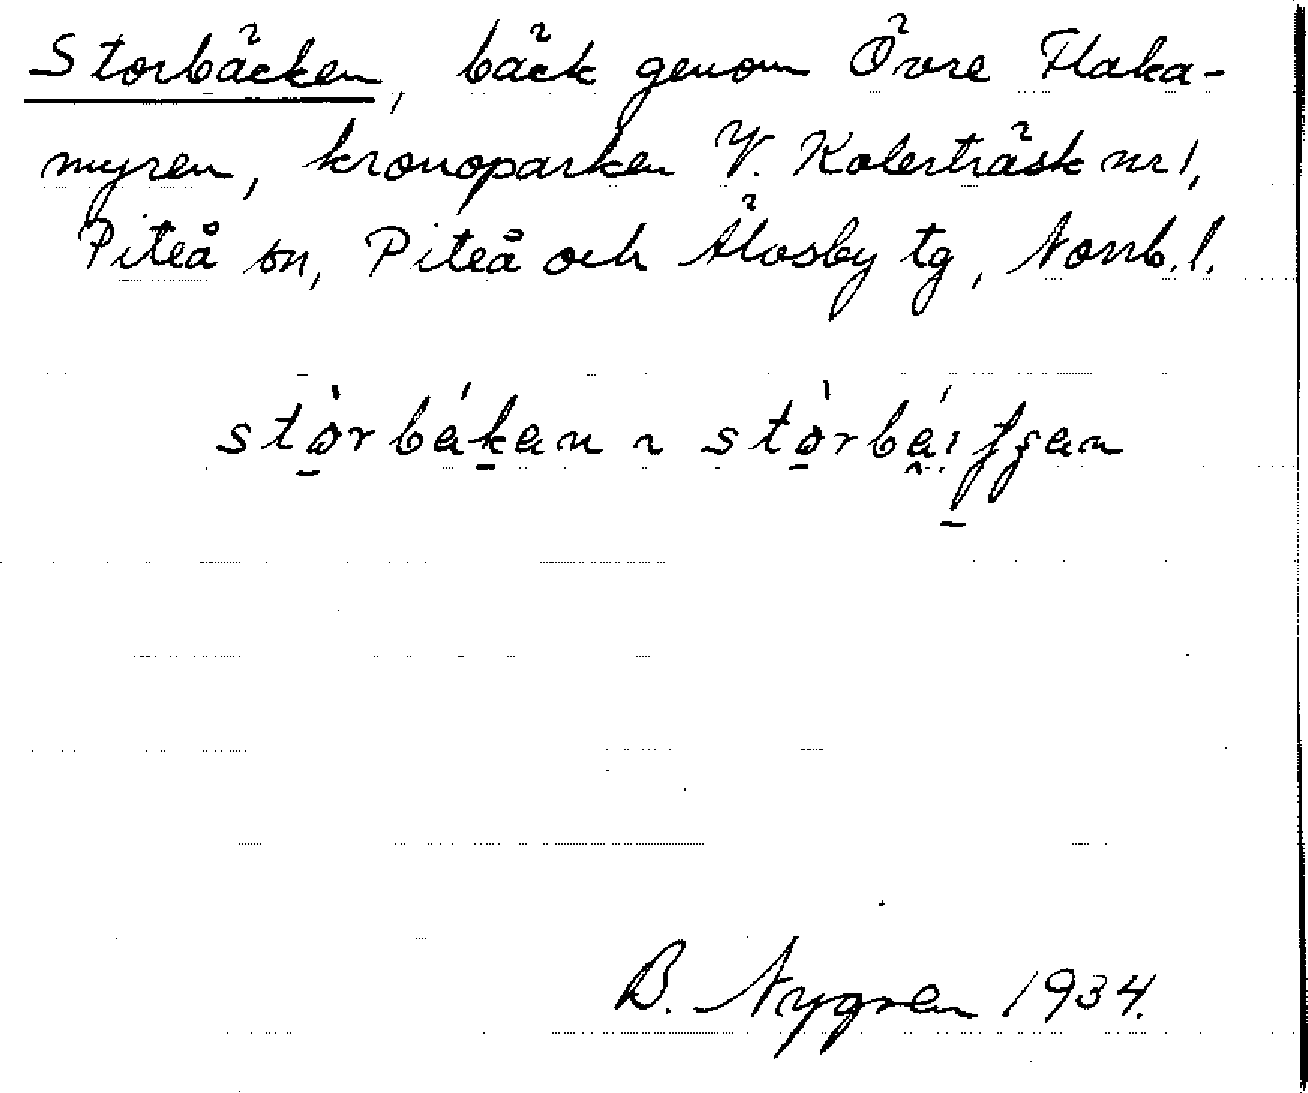 Storbäcken, bäck genom Övre Flaka-
myren, kronoparken V. Kolerträsk nr 1,
Piteå sn, Piteå och Älvsby tg, Norrb. l.
B. Nygren 1934.